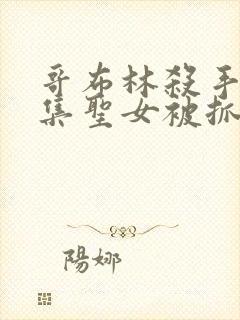 哥布林殺手
集聖女被抓
陽娜